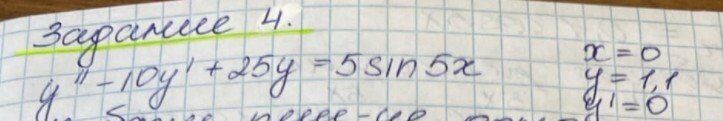 Задание 4.
y'' - 10y' + 25y = 5 sin 5x
x = 0
y = 1,1
y' = 0